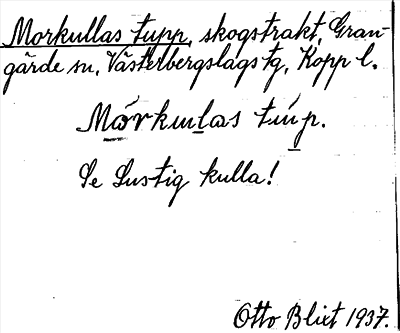 Morkullas tupp, skogstrakt, Gran-
gärde sn, Västerbergslags tg, Kopp l.
Mórkulas túp.
Se Lustig kulla!
Otto Blixt 1937.